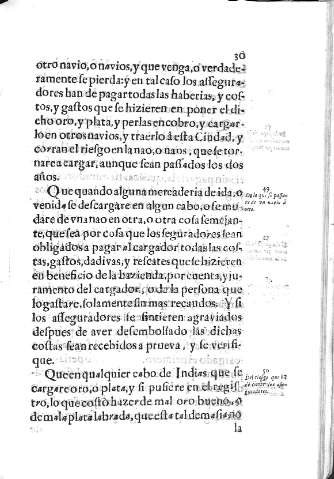 30
otro navio, o navios, y que venga, o verdade-
ramente se pierda: y en tal caso los assegura-
dores han de pagar todas las haberias, y cos-
tos, y gastos que se hizieren en poner el di-
cho oro, y plata, y perlas en cobro, y cargar-
lo en otros navios, y traerlo à esta Ciudad, y
corran el riesgo en la nao, o naos, que se tor-
nare a cargar, aunque sean passados los dos
años.
Que quando alguna mercaderia de ida, o
venida se descargare en algun cabo, o se mu-
dare de vna nao en otra, o otra cosa semejan-
te, que sea por cosa que los seguradores sean
obligados a pagar al cargador todas las cos-
tas, gastos, dadivas, y rescates que se hizieren
en beneficio de la hazienda, por cuenta, y ju-
ramento del cargador, o de la persona que
lo gastare, solamente sin mas recaudos. Y si
los asseguradores se sintieren agraviados
despues de aver desembolsado las dichas
costas sean recebidos a prueva, y se verifi-
que.
49
50
Que en qualquier cabo de Indias que se
cargare oro, o plata, y si pusiere en el regis-
tro, lo que costò hazer de mal oro bueno, o
de mala plata labrada, que esta tal demasia no
la